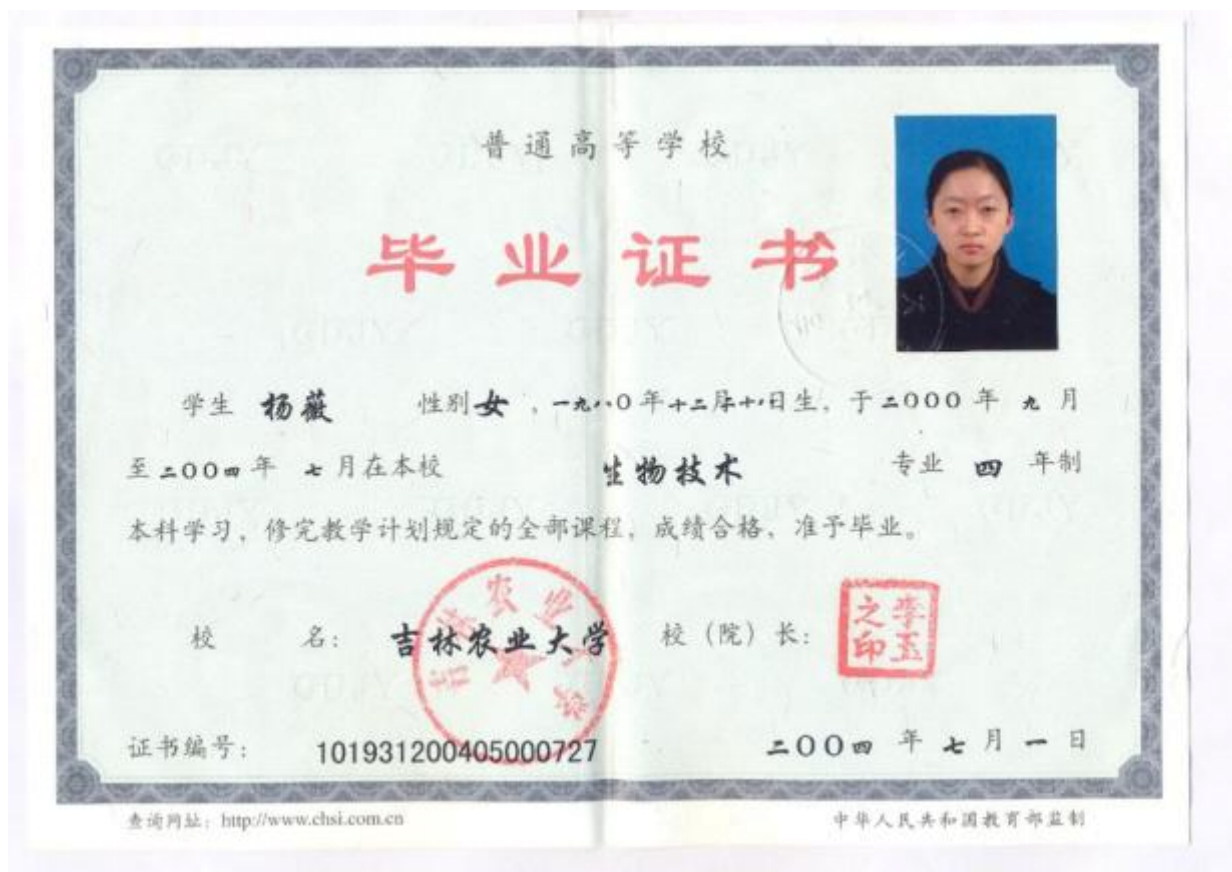 普通高等学校
毕业证书
学生 杨薇 性别 女，一九八〇年十二月十八日生，于二〇〇〇年 九 月
至二〇〇四年 七 月在本校 生物技术 专业 四 年制
本科学习，修完教学计划规定的全部课程，成绩合格，准予毕业。
校 名：吉林农业大学 校（院）长：李玉之印
吉林农业大学
证书编号：101931200405000727 二〇〇四 年 七 月 一 日
查询网址：http://www.chsi.com.cn 中华人民共和国教育部监制